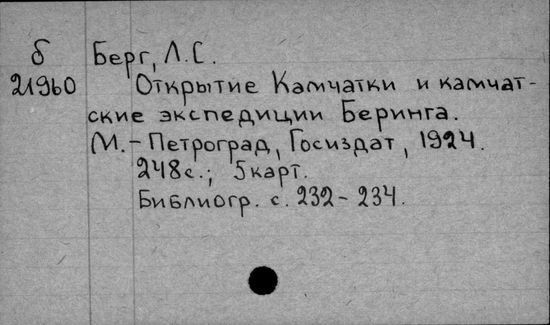 б Берг, Л.С.
21960 Открытие Камчатки и камчат-
ские экспедиции Беринга.
М.-Петроград, Госиздат, 1924.
248с.; 5карт.
Библиогр. с. 232-234.